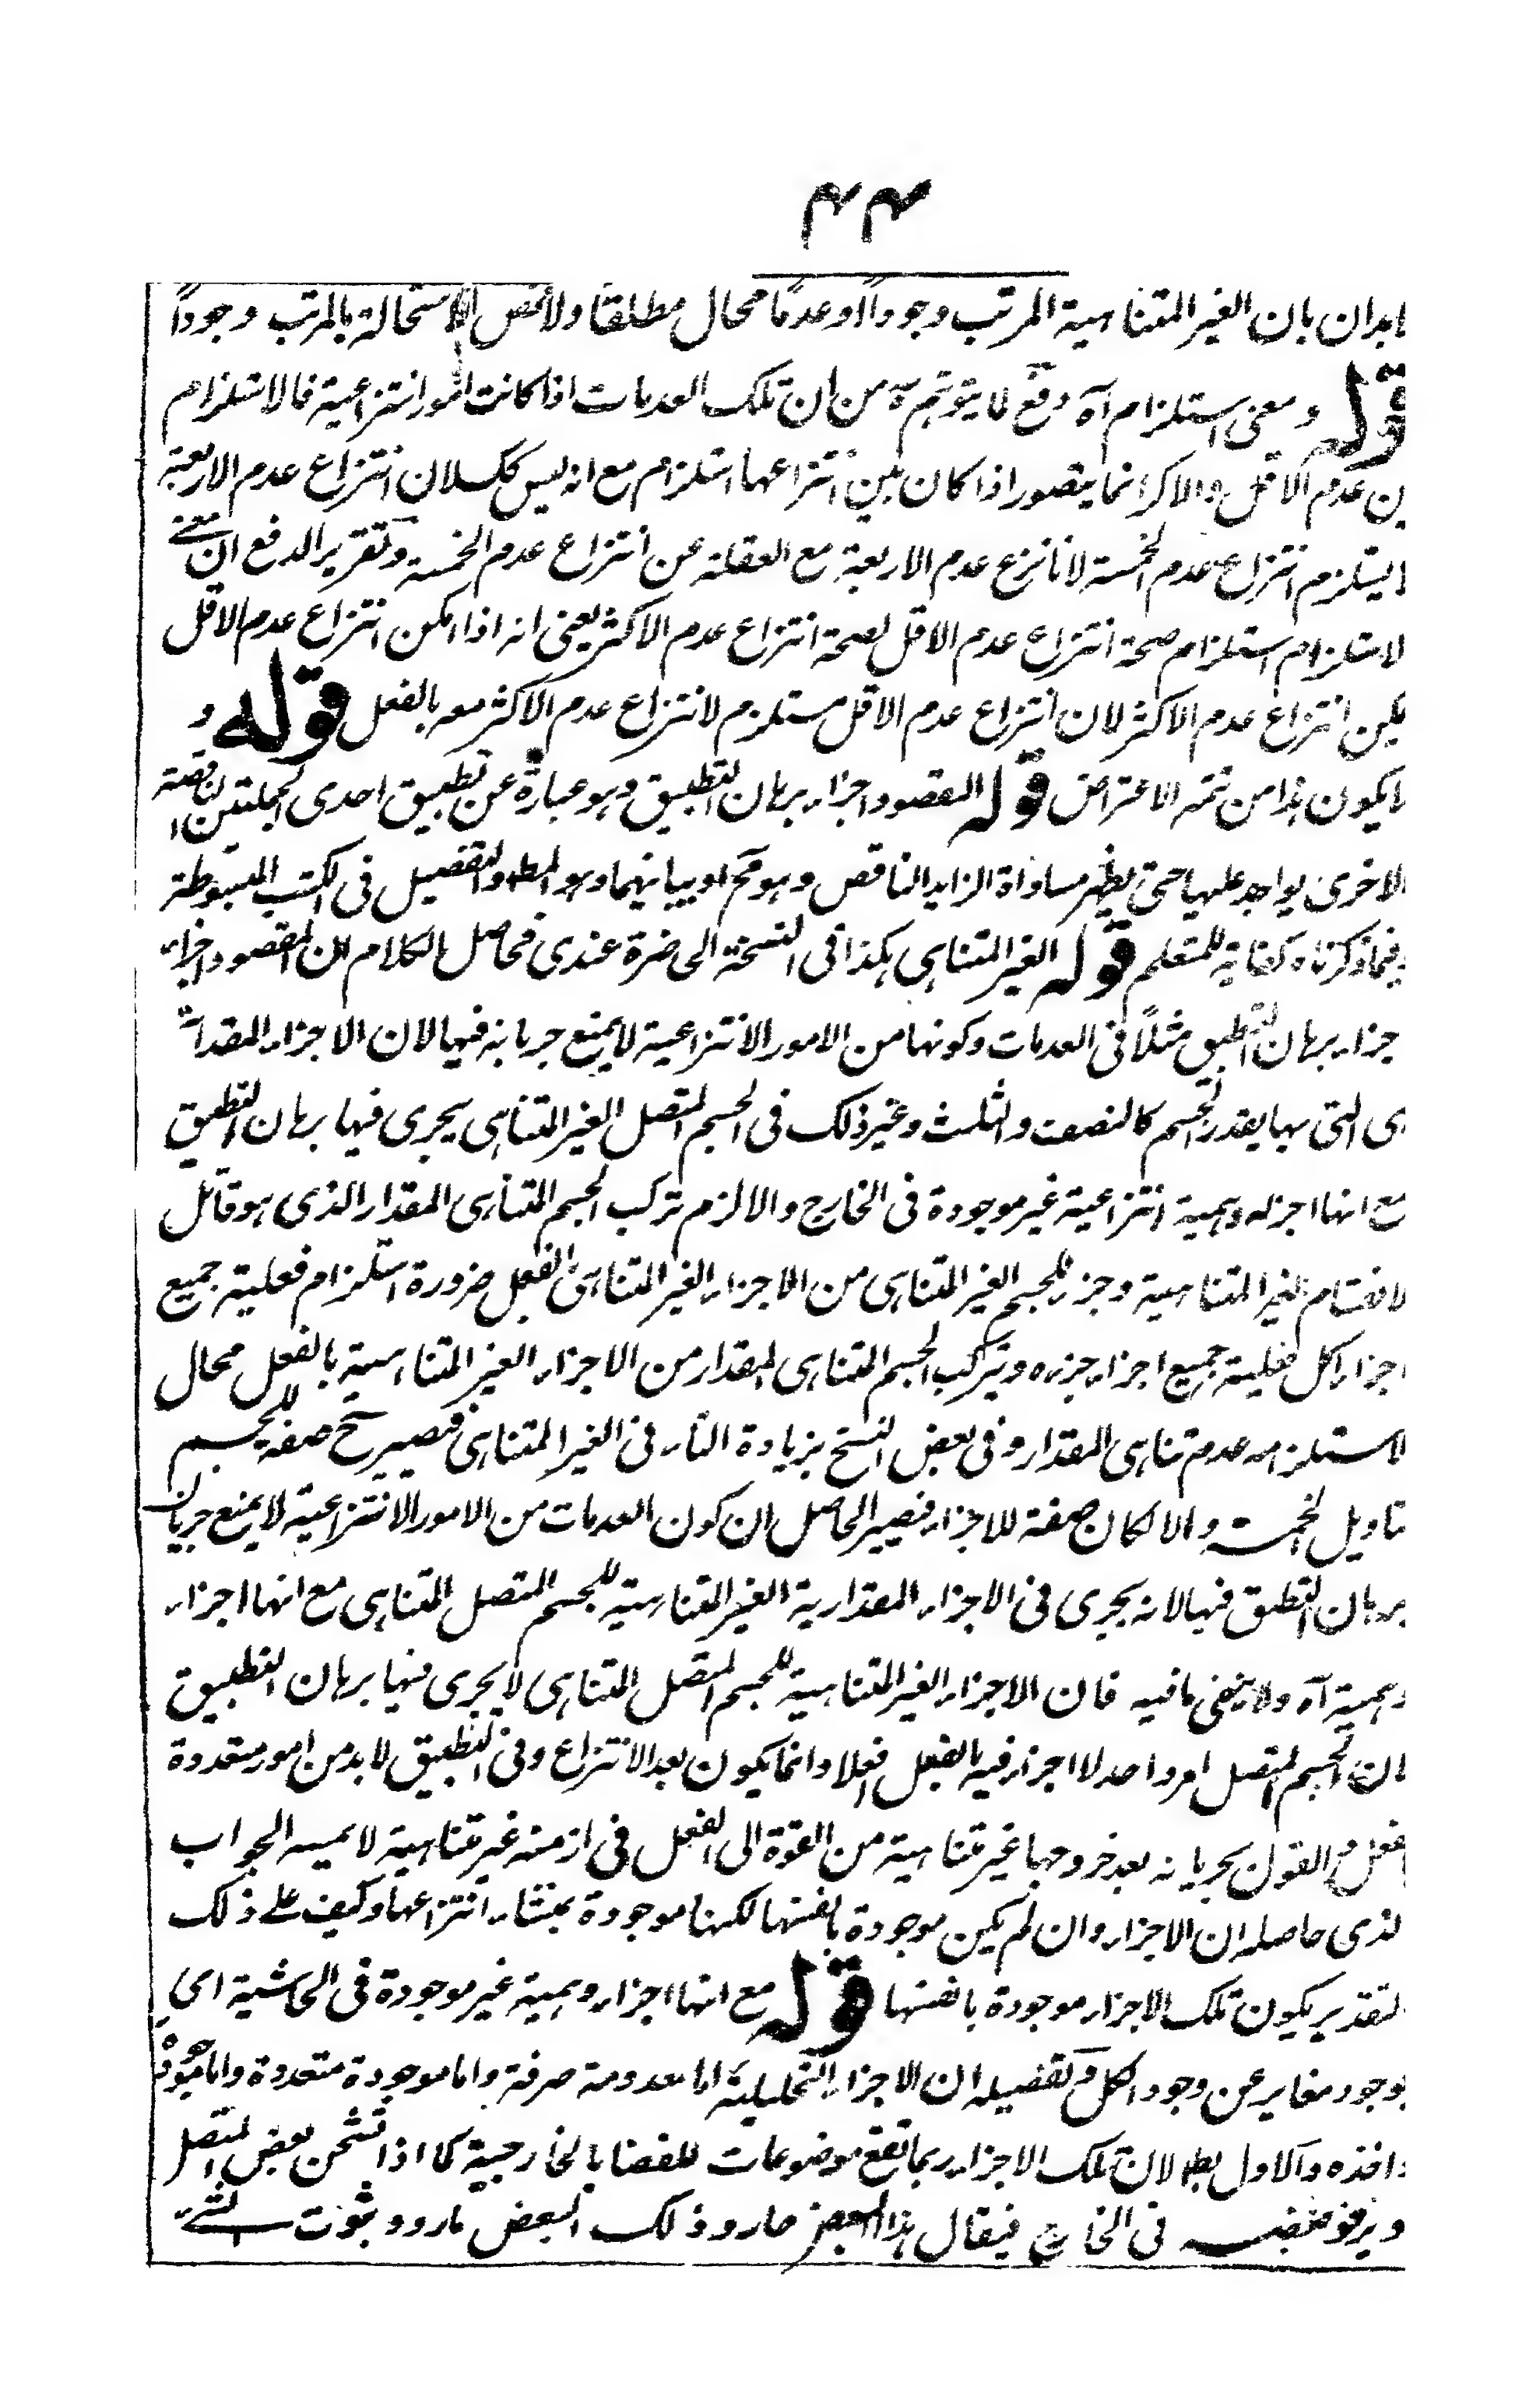 ۴۴
بان الغير المتناهية المرتب وجوداً او عدمًا محال مطلقًا ولا تخص الاستحالة بالمرتب وجوداً
قوله ومعنى استلزام آه دفع لما يتوهم من ان تلك العدمات اذا كانت امور انتزاعية فالاستلزام
ين عدم الاقل والاكثر انما يتصور اذا كان بين انتزاعها استلزام مع انه ليس كك لان انتزاع عدم الاربعة
ا يستلزم انتزاع عدم الخمسة لانا ننزع عدم الاربعة مع الغفلة عن انتزاع عدم الخمسة وتقرير الدفع ان معنے
لاستلزام استلزام صحة انتزاع عدم الاقل لصحة انتزاع عدم الاكثر يعنى انه اذا امكن انتزاع عدم الاقل
يمكن انتزاع عدم الاكثر لان انتزاع عدم الاقل مستلزم لانتزاع عدم الاكثر معه بالفعل قوله و
لا يكون هذا من تتمه الاعتراض قوله المقصود اجزاء برهان التطبيق وهو عبارة عن تطبيق احدى الجملتين الناقصة
الاخرى حتى يظهر مساواة الزايد الناقص وهو مح وهو المط والتفصيل فى الكتب المبسوطة
وفيما ذكرناه كفاية للمتعلم قوله الغير المتناهى هكذا فى النسخة الحاضرة عندى فحاصل الكلام ان المقصود اجزاء
جزاء برهان التطبيق مثلاً فى العدمات وكونها من الامور الانتزاعية لا يمنع جريانه فيها لان الاجزاء المقدارية
ى التى بها يقدر الجسم كالنصف والثلث وغير ذلك فى الجسم المتصل الغير المتناهى يجرى فيها برهان التطبيق
مع انها اجزاء وهمية انتزاعية غير موجودة فى الخارج والا لزم تركب الجسم المتناهى المقدار الذى هو قابل
لانقسام الغير المتناهية وجزء للجسم الغير المتناهى من الاجزاء الغير المتناهى بالفعل ضرورة استلزام فعلية جميع
اجزاء الكل فعلية جميع اجزاء جزءه وتركب الجسم المتناهى المقدار من الاجزاء الغير المتناهية بالفعل محال
لاستلزامه عدم تناهى المقدار وفى بعض النسخ بزيادة التاء فى الغير المتناهى فيصير ح صفة للجسم
تاويل الخمسة والا لكان صفة للاجزاء فيصير الحاصل ان كون العدمات من الامور الانتزاعية لا يمنع جريان
برهان التطبق فيها لانه يجرى فى الاجزاء المقدارية الغير المتناهية للجسم المتصل المتناهى مع انها اجزاء
وهمية آه ولا يخفى ما فيه فان الاجزاء الغير المتناهية للجسم المتصل المتناهى لا يجرى فيها برهان التطبيق
لان الجسم المتصل امر واحد لا اجزاء فيه بالفعل اصلا وانما يكون بعد الانتزاع وفى التطبيق لا بد من امور متعددة
بالفعل والقول بجريانه بعد خروجها غير متناهية من القوة الى الفعل فى ازمنه غير متناهية لا يمسه الجواب
لذى حاصله ان الاجزاء وان لم يكن موجودة بانفسها لكنها موجودة بمنشاء انتزاعها وكيف على ذلك
لتقدير يكون تلك الاجزاء موجودة بانفسها قوله مع انها اجزاء وهمية غير موجودة فى الحاشية اى
بوجود مغاير عن وجود الكل وتفصيله ان الاجزاء التحليلية اما معدومة صرفة واما موجودة متعددة واما موجودة
واحدة والاول بط لان تلك الاجزاء ربما تقع موضوعات للقضايا الخارجية كما اذا تسخن بعض المتصل
وبرد بعضه فى الخارج فيقال هذا البعض حار وذلك البعض بارد وثبوت الشے